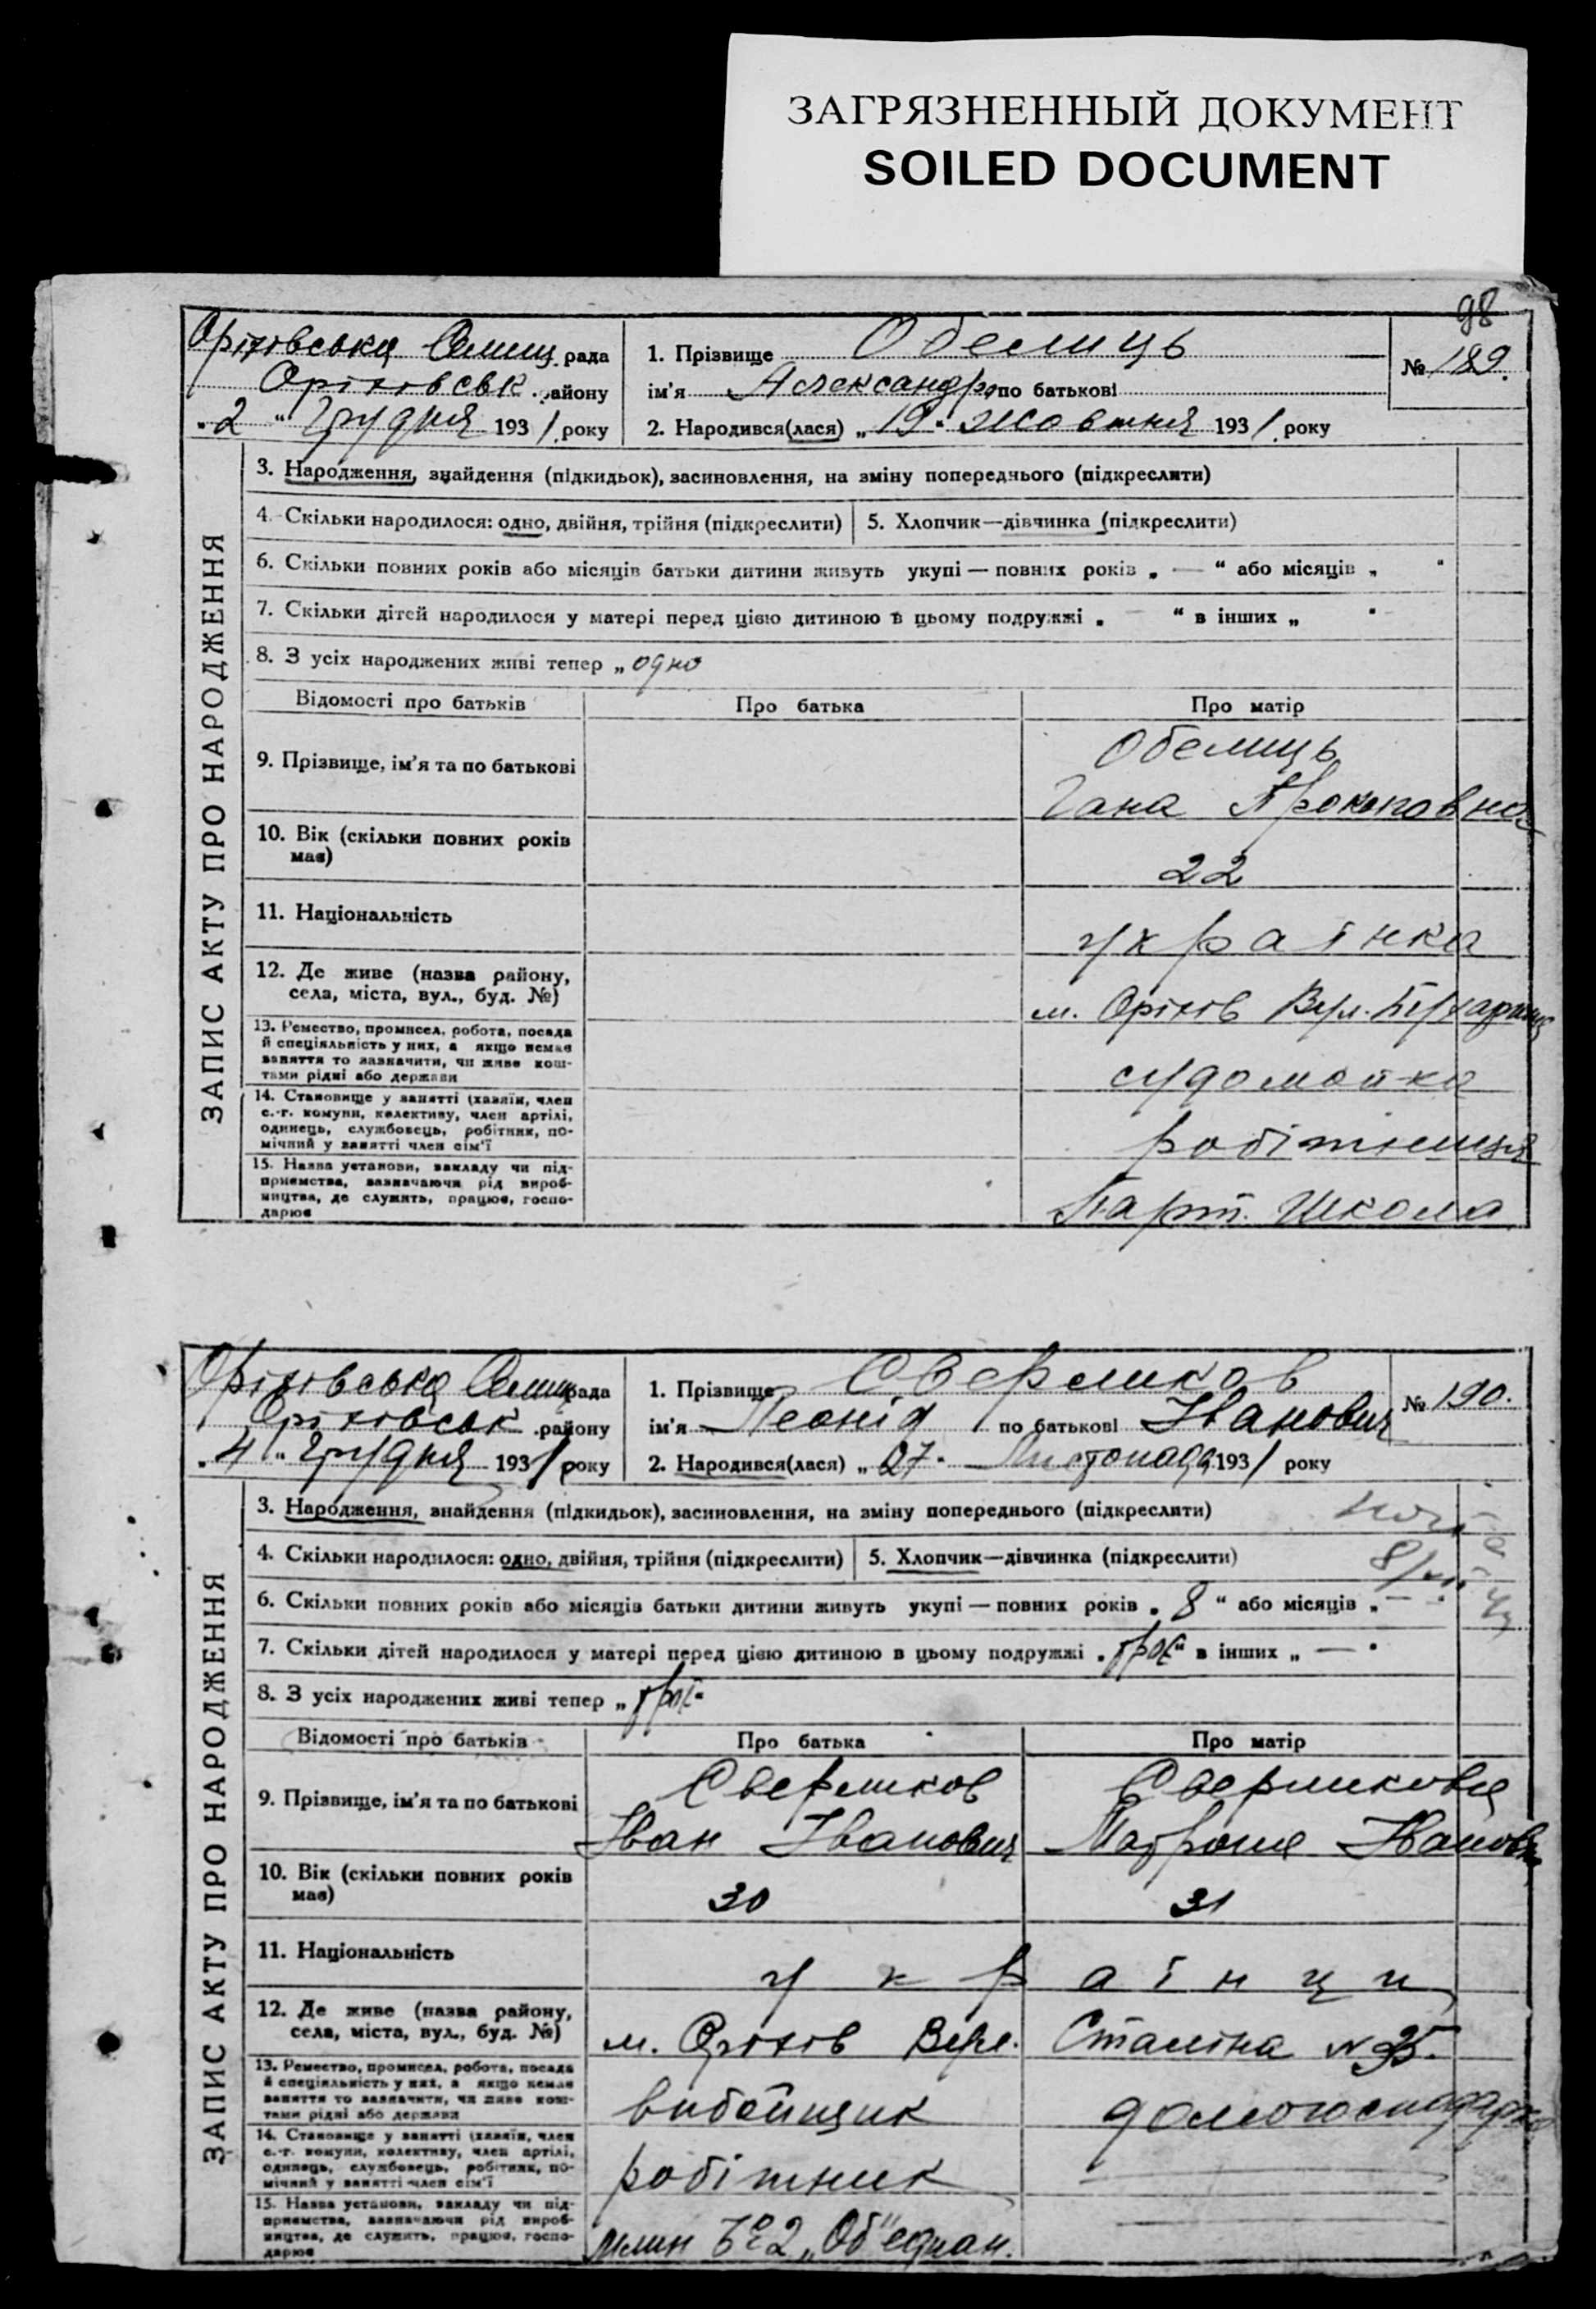 ЗАГРЯЗНЕННЫЙ ДОКУМЕНТ
SOILED DOCUMENT
98
Оріхівська Селищ. рада
Оріхівськ. району
„2" Грудня 1931 року
1. Прізвище Обемиць
ім'я Александра по батькові
2. Народився(лася) „19" Жовтня 1931 року
№ 189.
ЗАПИС АКТУ ПРО НАРОДЖЕННЯ
3. Народження, знайдення (підкидьок), засиновлення, на зміну попереднього (підкреслити)
4. Скільки народилося: одно, двійня, трійня (підкреслити) 5. Хлопчик—дівчинка (підкреслити)
6. Скільки повних років або місяців батьки дитини живуть укупі — повних років „ — " або місяців „ "
7. Скільки дітей народилося у матері перед цією дитиною в цьому подружжі „ " в інших „ "
8. З усіх народжених живі тепер „одно
Відомості про батьків Про батька Про матір
9. Прізвище, ім'я та по батькові
Обемиць
Гана Прокоповна
10. Вік (скільки повних років
має)
22
11. Національність
українка
12. Де живе (назва району,
села, міста, вул., буд. №)
м. Оріхів Вул.
13. Ремество, промисел, робота, посада
й спеціяльність у них, а якщо немає
заняття то зазначити, чи живе кош-
тами рідні або держави
судомойка
14. Становище у занятті (хазяїн, член
с.-г. комуни, колективу, член артілі,
одинець, службовець, робітник, по-
мічний у занятті член сім'ї
робітниця
15. Назва установи, закладу чи під-
приємства, зазначаючи рід вироб-
ництва, де служить, працює, госпо-
дарює
Парт. Школа
Оріхівська Селищ. рада
Оріхівськ. району
„4" Грудня 1931 року
1. Прізвище Сверликов
ім'я Леонід по батькові Іванович
2. Народився(лася) „27" Листопада 1931 року
№ 190.
ЗАПИС АКТУ ПРО НАРОДЖЕННЯ
3. Народження, знайдення (підкидьок), засиновлення, на зміну попереднього (підкреслити)
4. Скільки народилося: одно, двійня, трійня (підкреслити) 5. Хлопчик—дівчинка (підкреслити)
6. Скільки повних років або місяців батьки дитини живуть укупі — повних років „ 8 " або місяців „ —
7. Скільки дітей народилося у матері перед цією дитиною в цьому подружжі „троє" в інших „ — "
8. З усіх народжених живі тепер „троє"
Відомості про батьків Про батька Про матір
9. Прізвище, ім'я та по батькові
Сверликов Сверликова
Іван Іванович Мотрона Івановна
10. Вік (скільки повних років
має)
30 31
11. Національність
українци
12. Де живе (назва району,
села, міста, вул., буд. №)
м. Оріхів Вул. Сталіна №35.
13. Ремество, промисел, робота, посада
й спеціяльність у них, а якщо немає
заняття то зазначити, чи живе кош-
тами рідні або держави
вибойщик домогосподарка
14. Становище у занятті (хазяїн, член
с.-г. комуни, колективу, член артілі,
одинець, службовець, робітник, по-
мічний у занятті член сім'ї
робітник
15. Назва установи, закладу чи під-
приємства, зазначаючи рід вироб-
ництва, де служить, працює, госпо-
дарює
Млин № 2 „Об"єднан.